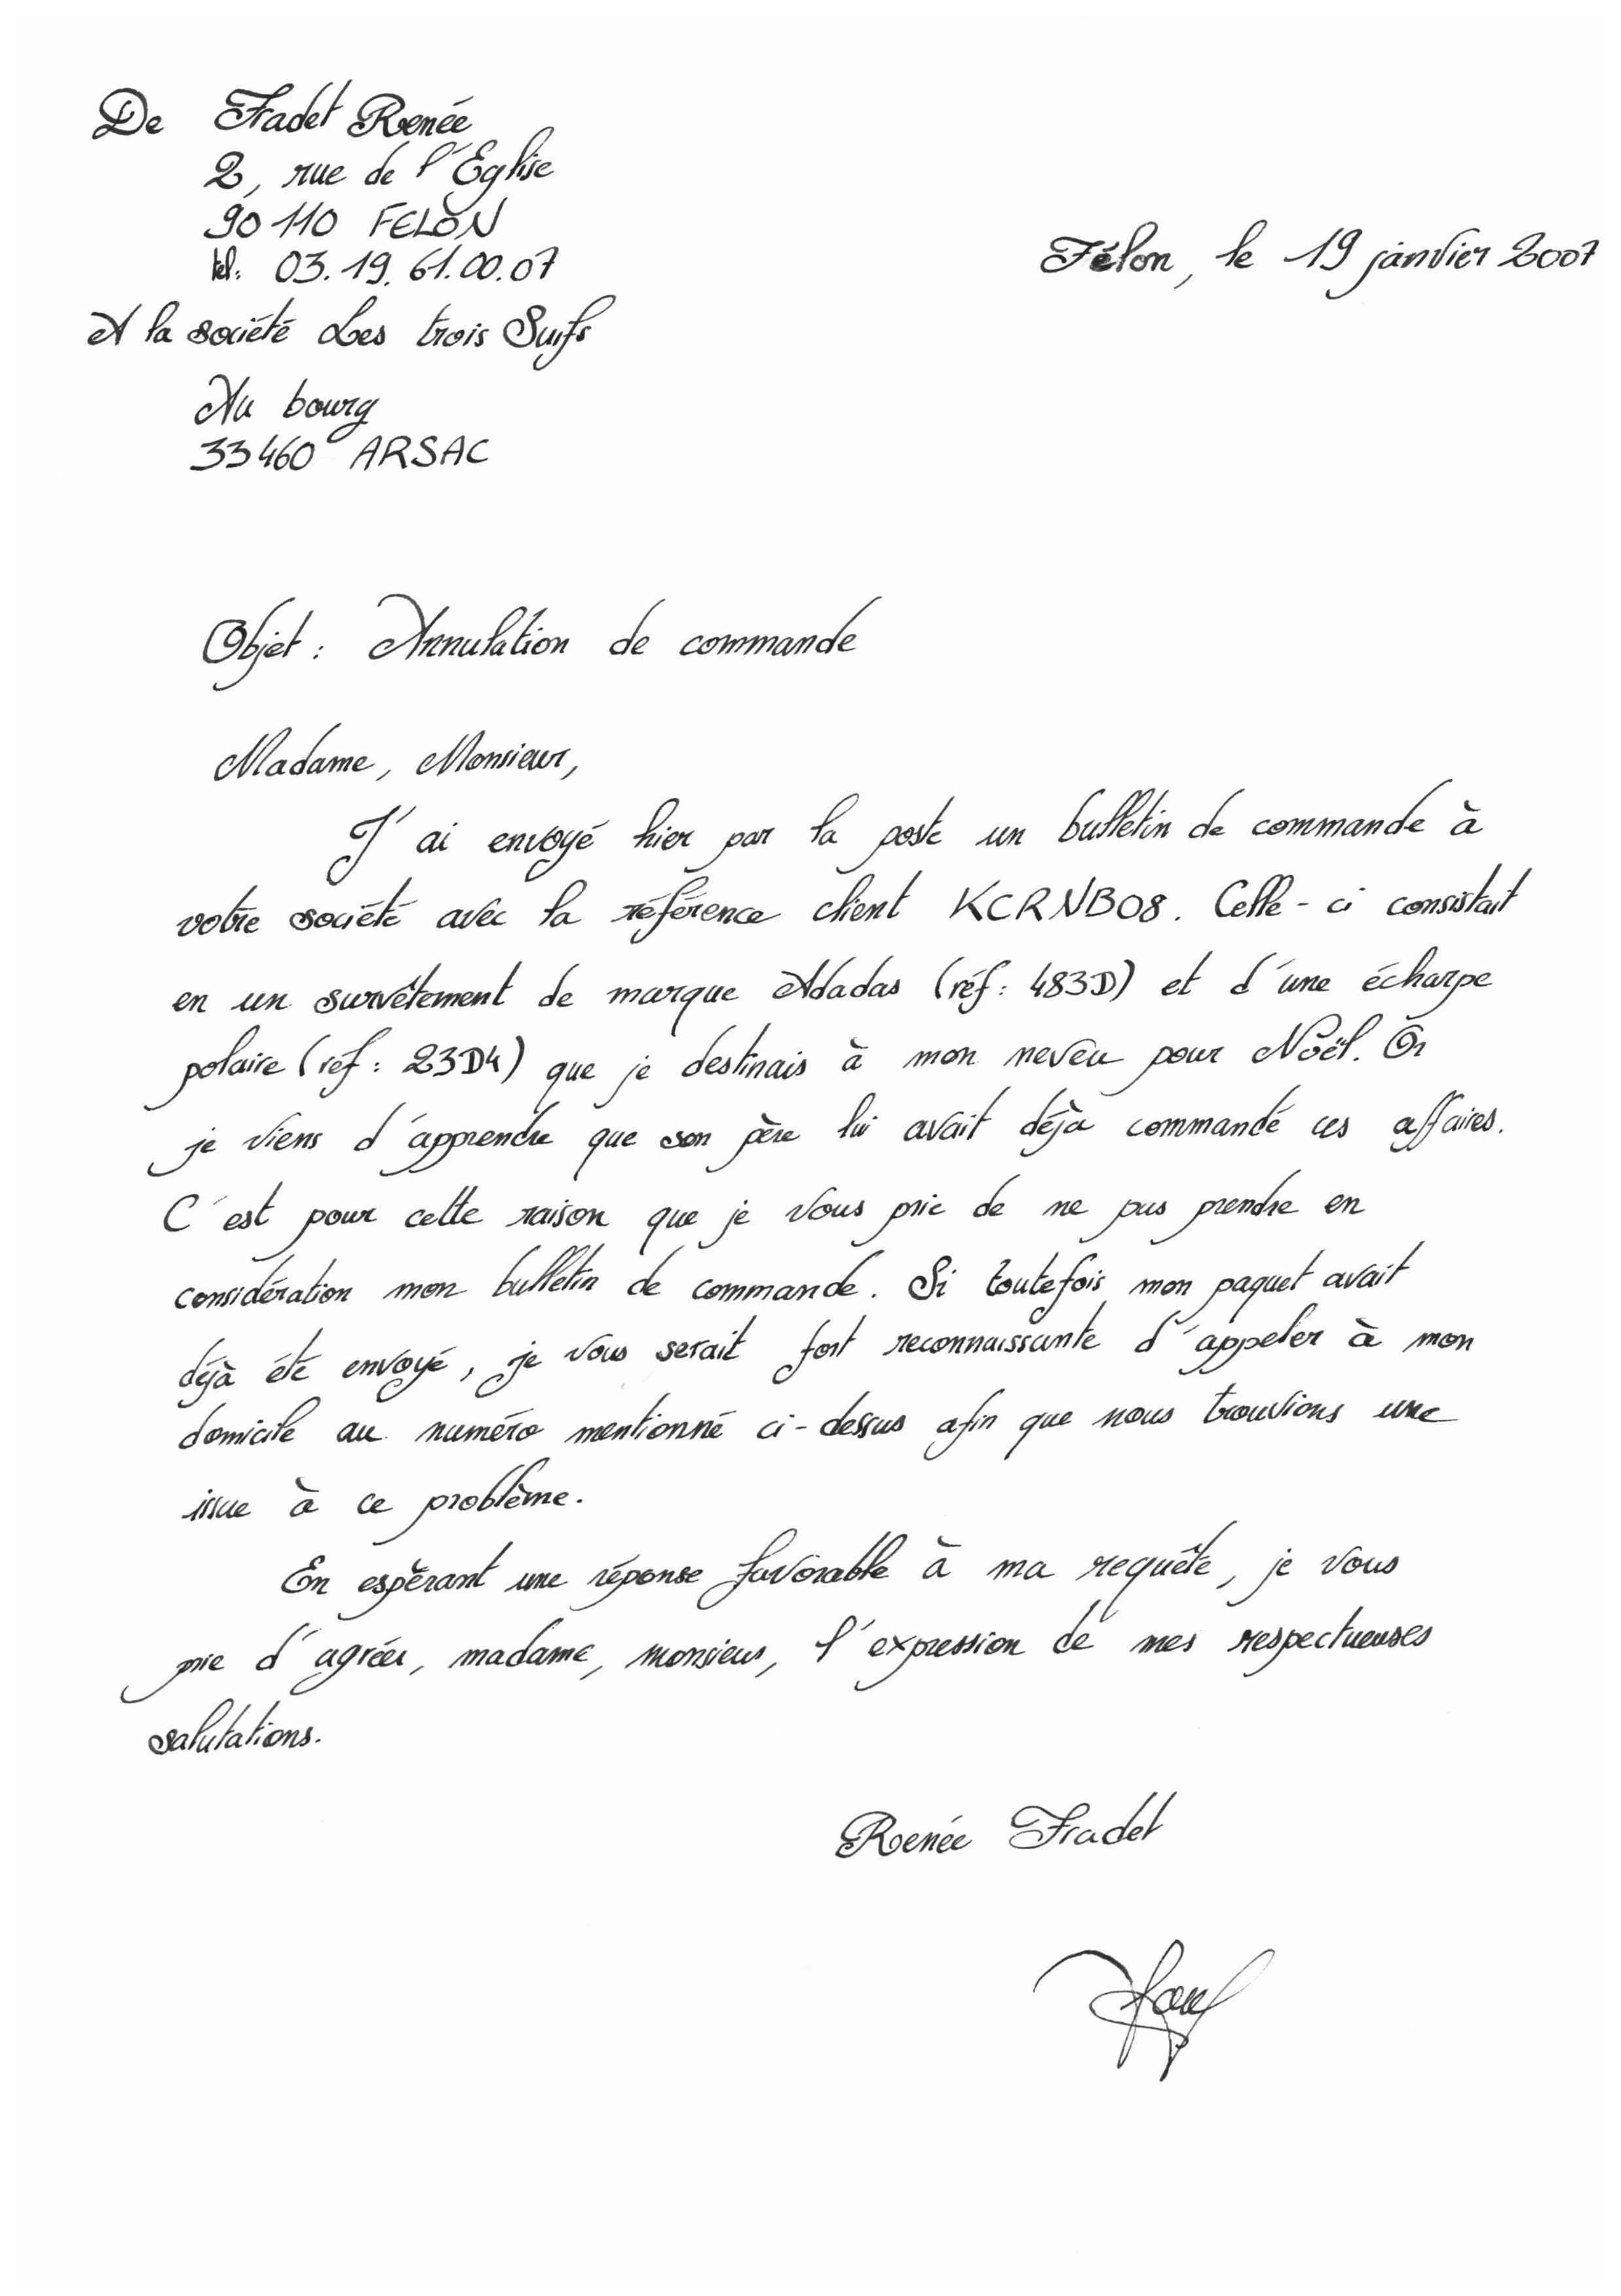 De Fradet Renée
2, rue de l'Eglise
90 110 FELON
tel: 03.19.61.00.07
Félon, le 19 janvier 2007
A la société Les trois Suifs
Au bourg
33460 ARSAC
Objet : Annulation de commande
Madame, Monsieur,
J'ai envoyé hier par la poste un bulletin de commande à
votre société avec la référence client KCRNB08. Celle-ci consistait
en un survêtement de marque Adadas (réf : 483D) et d'une écharpe
polaire (réf : 23D4) que je destinais à mon neveu pour Noël. Or
je viens d'apprendre que son père lui avait déjà commandé ces affaires.
C'est pour cette raison que je vous prie de ne pas prendre en
considération mon bulletin de commande. Si toutefois mon paquet avait
déjà été envoyé, je vous serait fort reconnaissante d'appeler à mon
domicile au numéro mentionné ci-dessus afin que nous trouvions une
issue à ce problème.
En espèrant une réponse favorable à ma requête, je vous
prie d'agréer, madame, monsieur, l'expression de mes respectueuses
salutations.
Renée Fradet